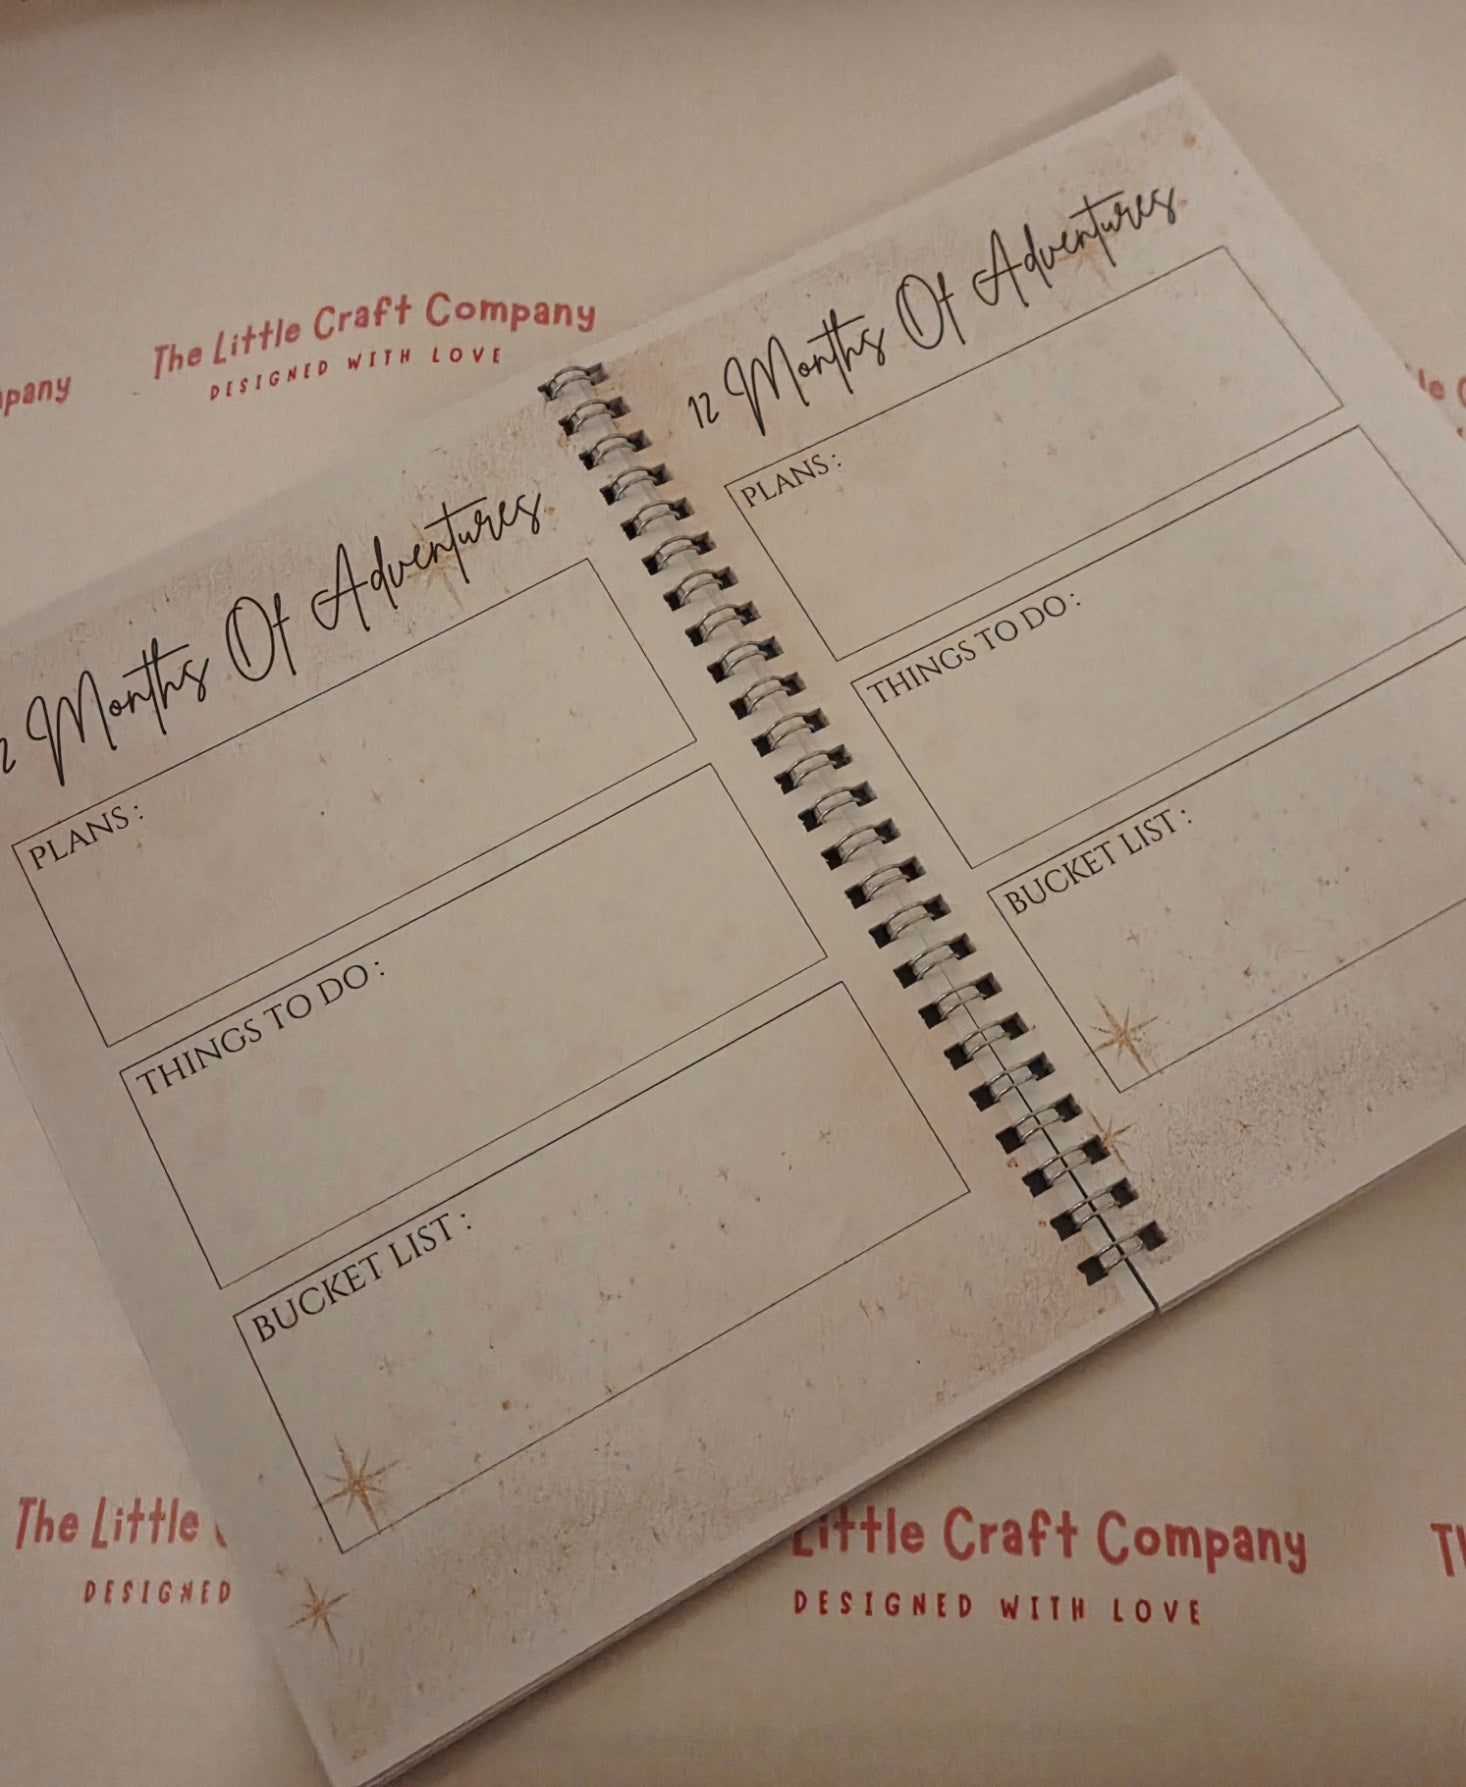 The Little Craft Company
DESIGNED WITH LOVE
Months Of Adventures
PLANS:
THINGS TO DO:
BUCKET LIST:
12 Months Of Adventures
PLANS:
THINGS TO DO:
BUCKET LIST:
The Little
DESIGNED
Little Craft Company
DESIGNED WITH LOVE